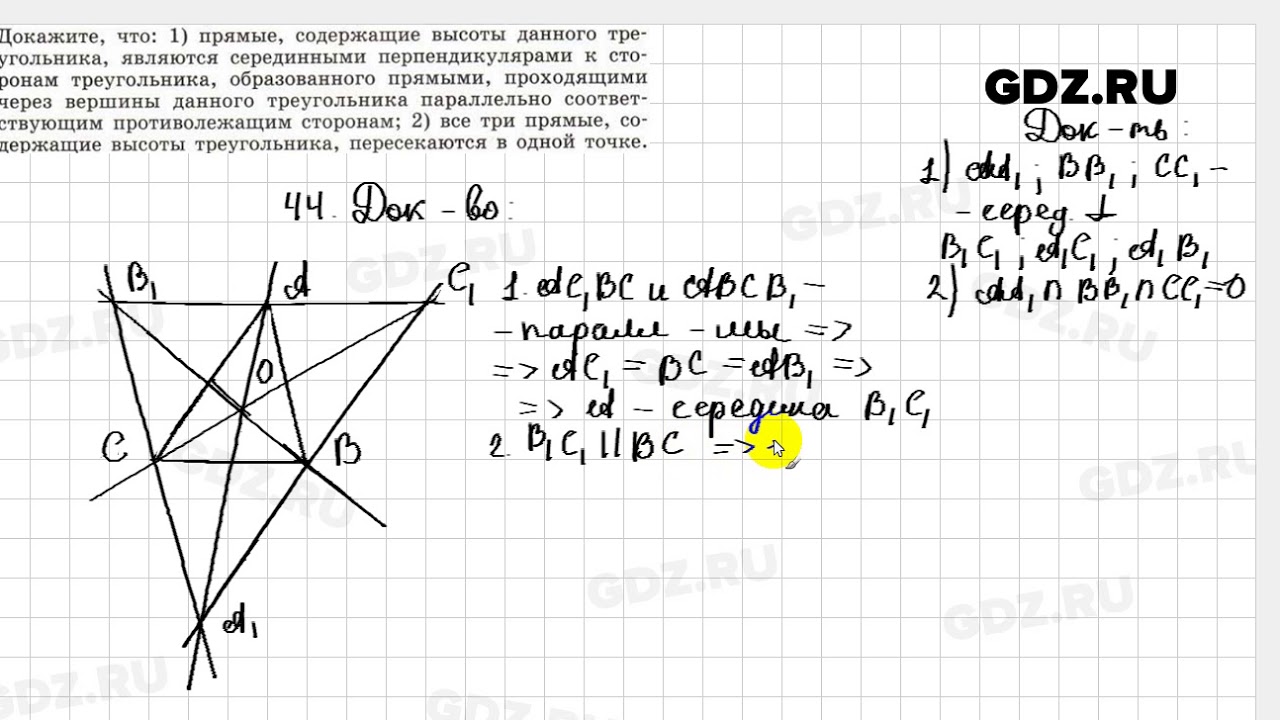 Докажите, что: 1) прямые, содержащие высоты данного тре-
угольника, являются серединными перпендикулярами к сто-
ронам треугольника, образованного прямыми, проходящими
через вершины данного треугольника параллельно соответ-
ствующим противолежащим сторонам; 2) все три прямые, со-
держащие высоты треугольника, пересекаются в одной точке.
GDZ.RU
Док-ть:
1) AA₁; BB₁; CC₁ -
- серед. ⊥
B₁C₁; A₁C₁; A₁B₁
2) AA₁ ∩ BB₁ ∩ CC₁ = O
44. Док-во:
1. AC₁BC и ABCB₁ -
- паралл-мы =>
=> AC₁ = BC = AB₁ =>
=> A - середина B₁C₁
2. B₁C₁ || BC =>
B₁
A
C₁
O
C
B
A₁
GDZ.RU
GDZ.RU
GDZ.RU
GDZ.RU
GDZ.RU
GDZ.RU
GDZ.RU
GDZ.RU
GDZ.RU
GDZ.RU
GDZ.RU